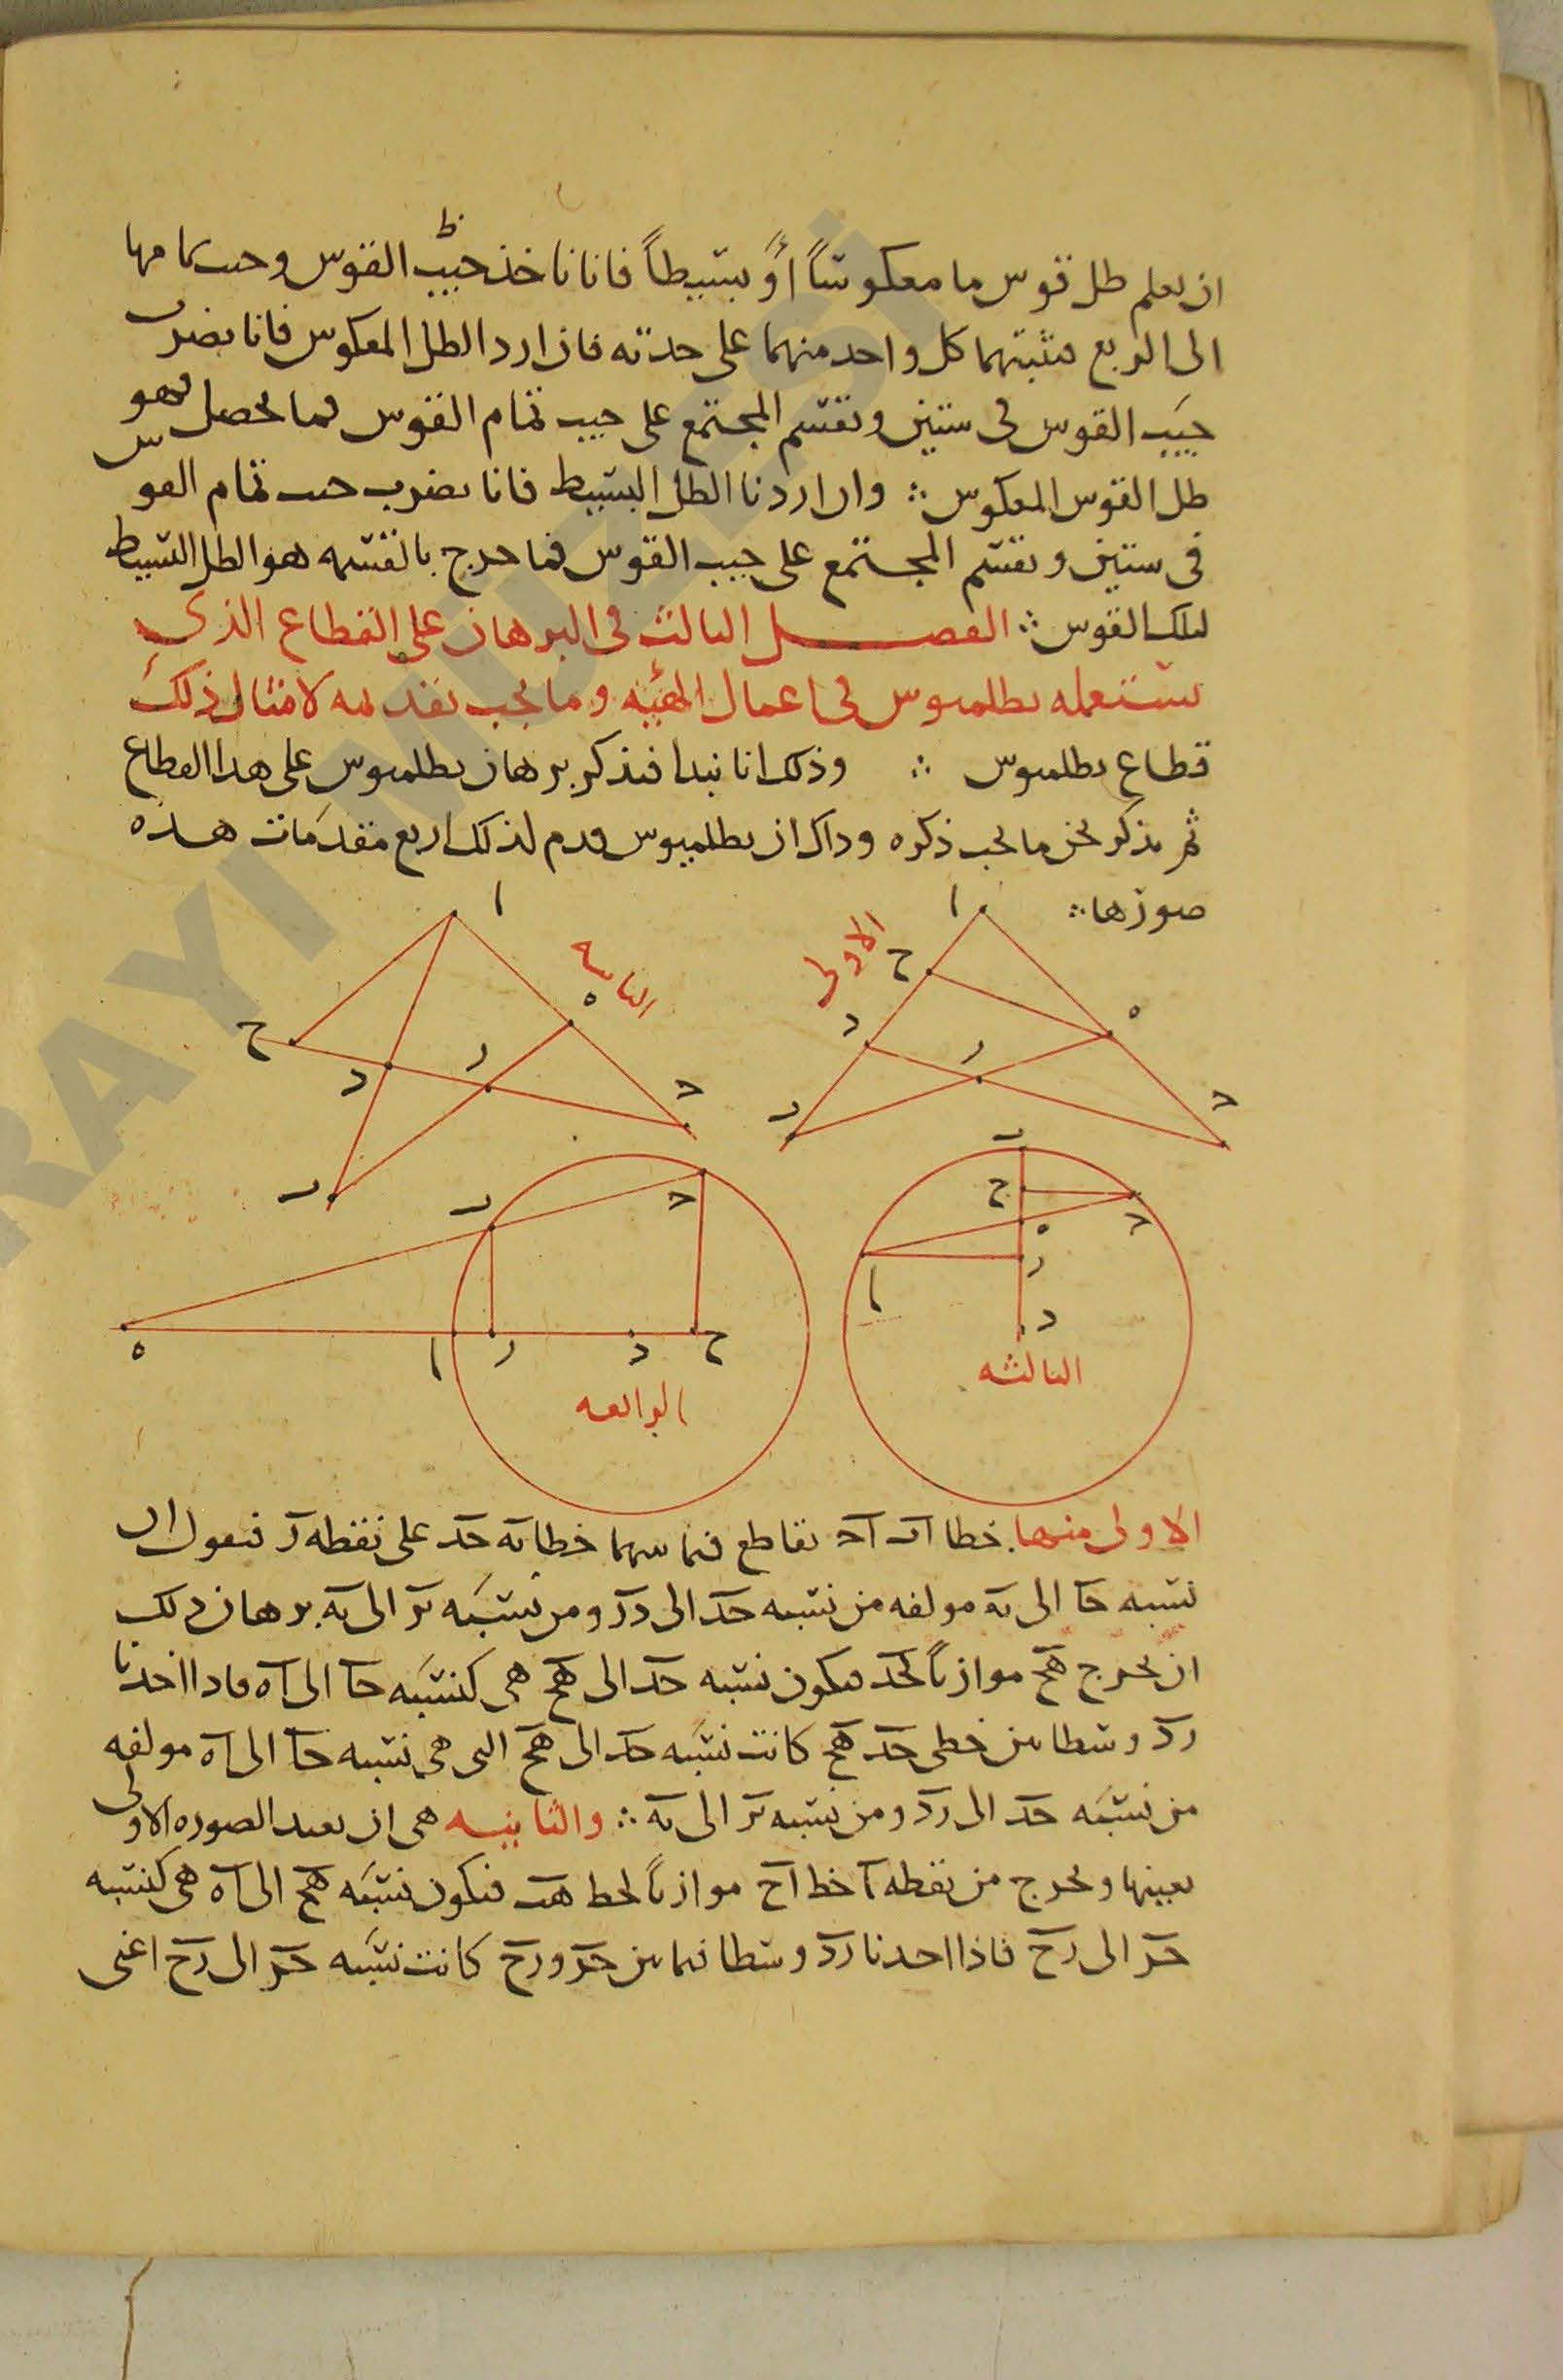 ان نعلم ظل قوس ما معكوساً أو بسيطاً فانا ناخذ جيب القوس وجيب تمامها
الى الربع فنثبتهما كل واحد منهما على حدته فان ارد الظل المعكوس فانا نضرب
جيب القوس فى ستين ونقسم المجتمع على جيب تمام القوس فما يحصل فهو
ظل القوس المعكوس ∴ وان اردنا الظل البسيط فانا نضرب جيب تمام القوس
فى ستين ونقسم المجتمع على جيب القوس فما خرج بالقسمه هو الظل البسيط
لتلك القوس ∴ الفصل الثالث فى البرهان على القطاع الذى
يستعمله بطلميوس فى اعمال الهيئه وما يجب تقديمه لامثال ذلك
قطاع بطلميوس ∴ وذلك انا نبدا فنذكر برهان بطلميوس على هذا القطاع
ثم نذكر نحن ما يجب ذكره وذاك ان بطلميوس قدم لذلك اربع مقدمات هذه
صورها ∴
الاولى
ا
ح
د
ب
ر
ه
ج
الثانيه
ا
ه
ح
د
ر
ج
ب
الثالثه
ب
ح
ج
ه
ر
ا
د
الرابعه
ب
ج
ه
ا
ر
د
ح
الاولى منها خطا اب اج تقاطع فيما بينهما خطا به جد على نقطه ر فنقول ان
نسبه جا الى به مولفه من نسبه جد الى در ومن نسبه بر الى به برهان ذلك
ان نخرج هح موازياً لجد فيكون نسبه جد الى هح هى كنسبه جا الى اه فاذا اخذنا
رد وسطا بين خطى جد هح كانت نسبه جد الى هح التى هى نسبه جا الى اه مولفه
من نسبه جد الى رد ومن نسبه بر الى به ∴ والثانيه هى ان نعيد الصوره الاولى
بعينها ونخرج من نقطه ا خط اح موازياً لخط هب فيكون نسبه هج الى اه هى كنسبه
جر الى رح فاذا اخذنا رد وسطا فيما بين جر ورح كانت نسبه جر الى رح اعنى